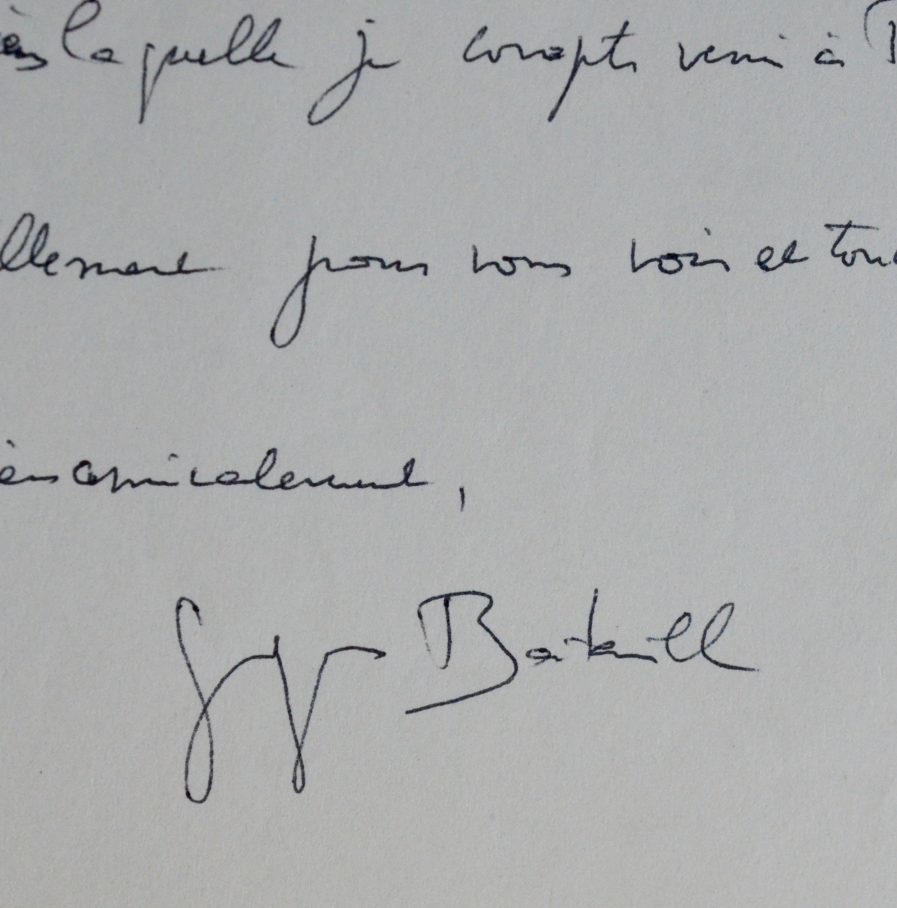 laquelle je compte venir à
llement pour vous voir et tou
amicalement,
Georges Bataille